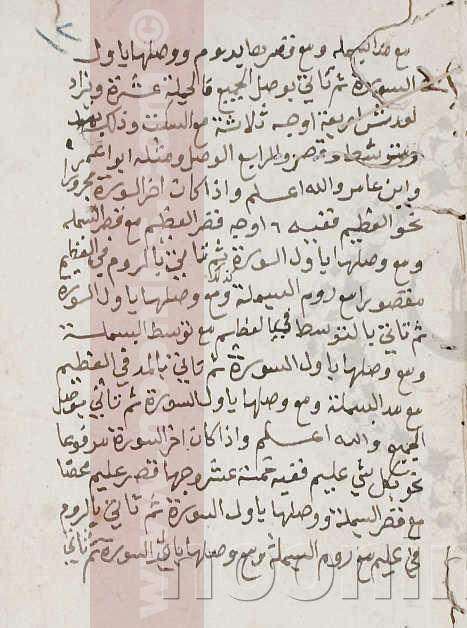 مع مد البسملة ومع قصرها بروم ووصلها باول
السورة ثم تاتي بوصل الجميع فالجملة عشرة وتزاد
لورش اربعة اوجه ثلاثة مع السكت وذلك بمد
وتوسط وقصر والرابع الوصل ومثله ابو عمر
وابن عامر والله اعلم واذا كان اخر السورة مجرورا
نحو العظيم ففيه ٦ اوجه قصر العظيم مع قصر البسملة
ومع وصلها باول السورة ثم تاتي بالروم في العظيم
مقصورا مع روم البسملة ومع وصلها باول السورة
ثم تاتي بالتوسط في العظيم مع توسط البسملة
ومع وصلها باول السورة ثم تاتي بالمد في العظيم
مع مد البسملة ومع وصلها باول السورة ثم تاتي بوصل
الجميع والله اعلم واذا كان اخر السورة مرفوعا
نحو بكل شي عليم ففيه خمسة عشر وجها قصر عليم محضا
مع قصر البسملة ووصلها باول السورة ثم تاتي بالروم
في عليم مع روم البسملة ومع وصلها باول السورة ثم تاتي